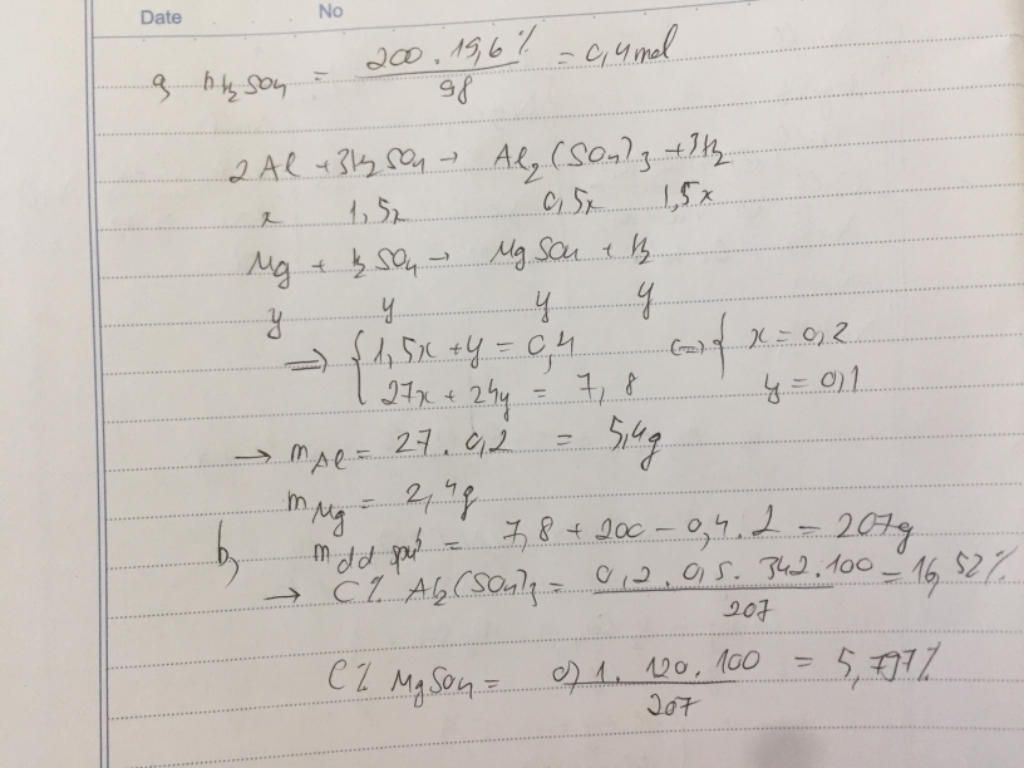 Date No
a, nH2SO4 = 200 . 19,6% / 98 = 0,4 mol
2Al + 3H2SO4 → Al2(SO4)3 + 3H2
x 1,5x 0,5x 1,5x
Mg + H2SO4 → MgSO4 + H2
y y y y
⇒ { 1,5x + y = 0,4 (=) { x = 0,2
27x + 24y = 7,8 y = 0,1
→ mAl = 27 . 0,2 = 5,4g
mMg = 2,4g
b, mdd spứ = 7,8 + 200 - 0,4 . 2 = 207g
→ C% Al2(SO4)3 = 0,2 . 0,5 . 342 . 100 / 207 = 16,52%
C% MgSO4 = 0,1 . 120 . 100 / 207 = 5,797%